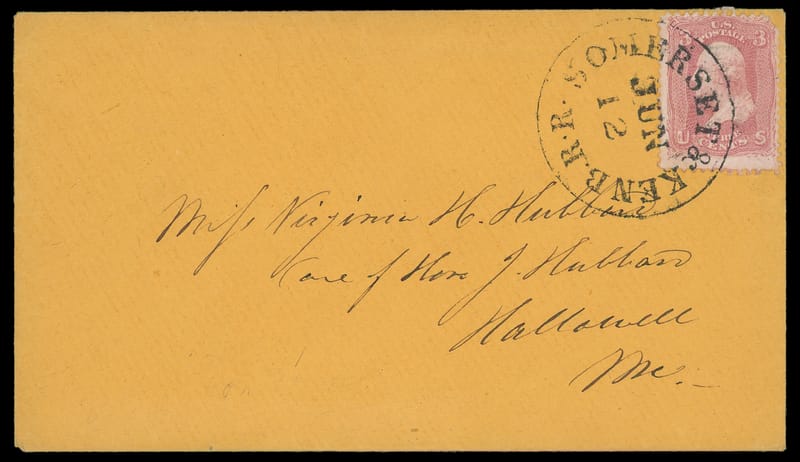 U.S.
POSTAGE
3 3
U THREE S
CENTS
SOMERSET & KENB. R.R.
JUN
12
Miss Virginia H. Hubbard
Care of Hon J. Hubbard
Hallowell
Me.